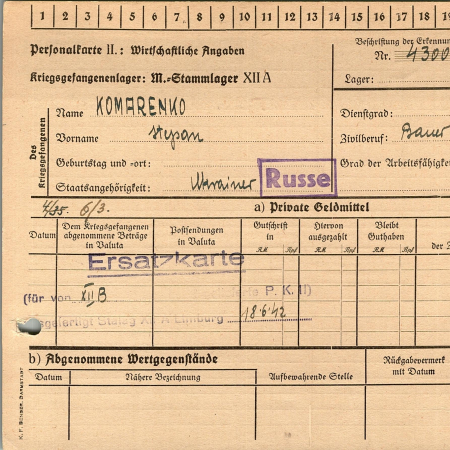 1 2 3 4 5 6 7 8 9 10 11 12 13 14 15 16 17 18 19
Personalkarte II.: Wirtschaftliche Angaben
Beschriftung der Erkennu
Nr. 4300
Kriegsgefangenenlager: M.-Stammlager XII A
Lager:
Des Kriegsgefangenen
Name KOMARENKO
Dienstgrad:
Vorname Stepan
Zivilberuf: Bauer
Geburtstag und -ort:
Grad der Arbeitsfähigkei
Staatsangehörigkeit: Ukrainer Russe
6/3.
a) Private Geldmittel
Datum
Dem Kriegsgefangenen abgenommene Beträge in Valuta
Postsendungen in Valuta
Gutschrift in
RM Rpf
Hiervon ausgezahlt
RM Rpf
Bleibt Guthaben
RM Rpf
der
Ersatzkarte
(für von XII B P. K. II)
gefertigt Stalag XII A Limburg 18.6.42
b) Abgenommene Wertgegenstände
Rückgabevermerk mit Datum
Datum
Nähere Bezeichnung
Aufbewahrende Stelle